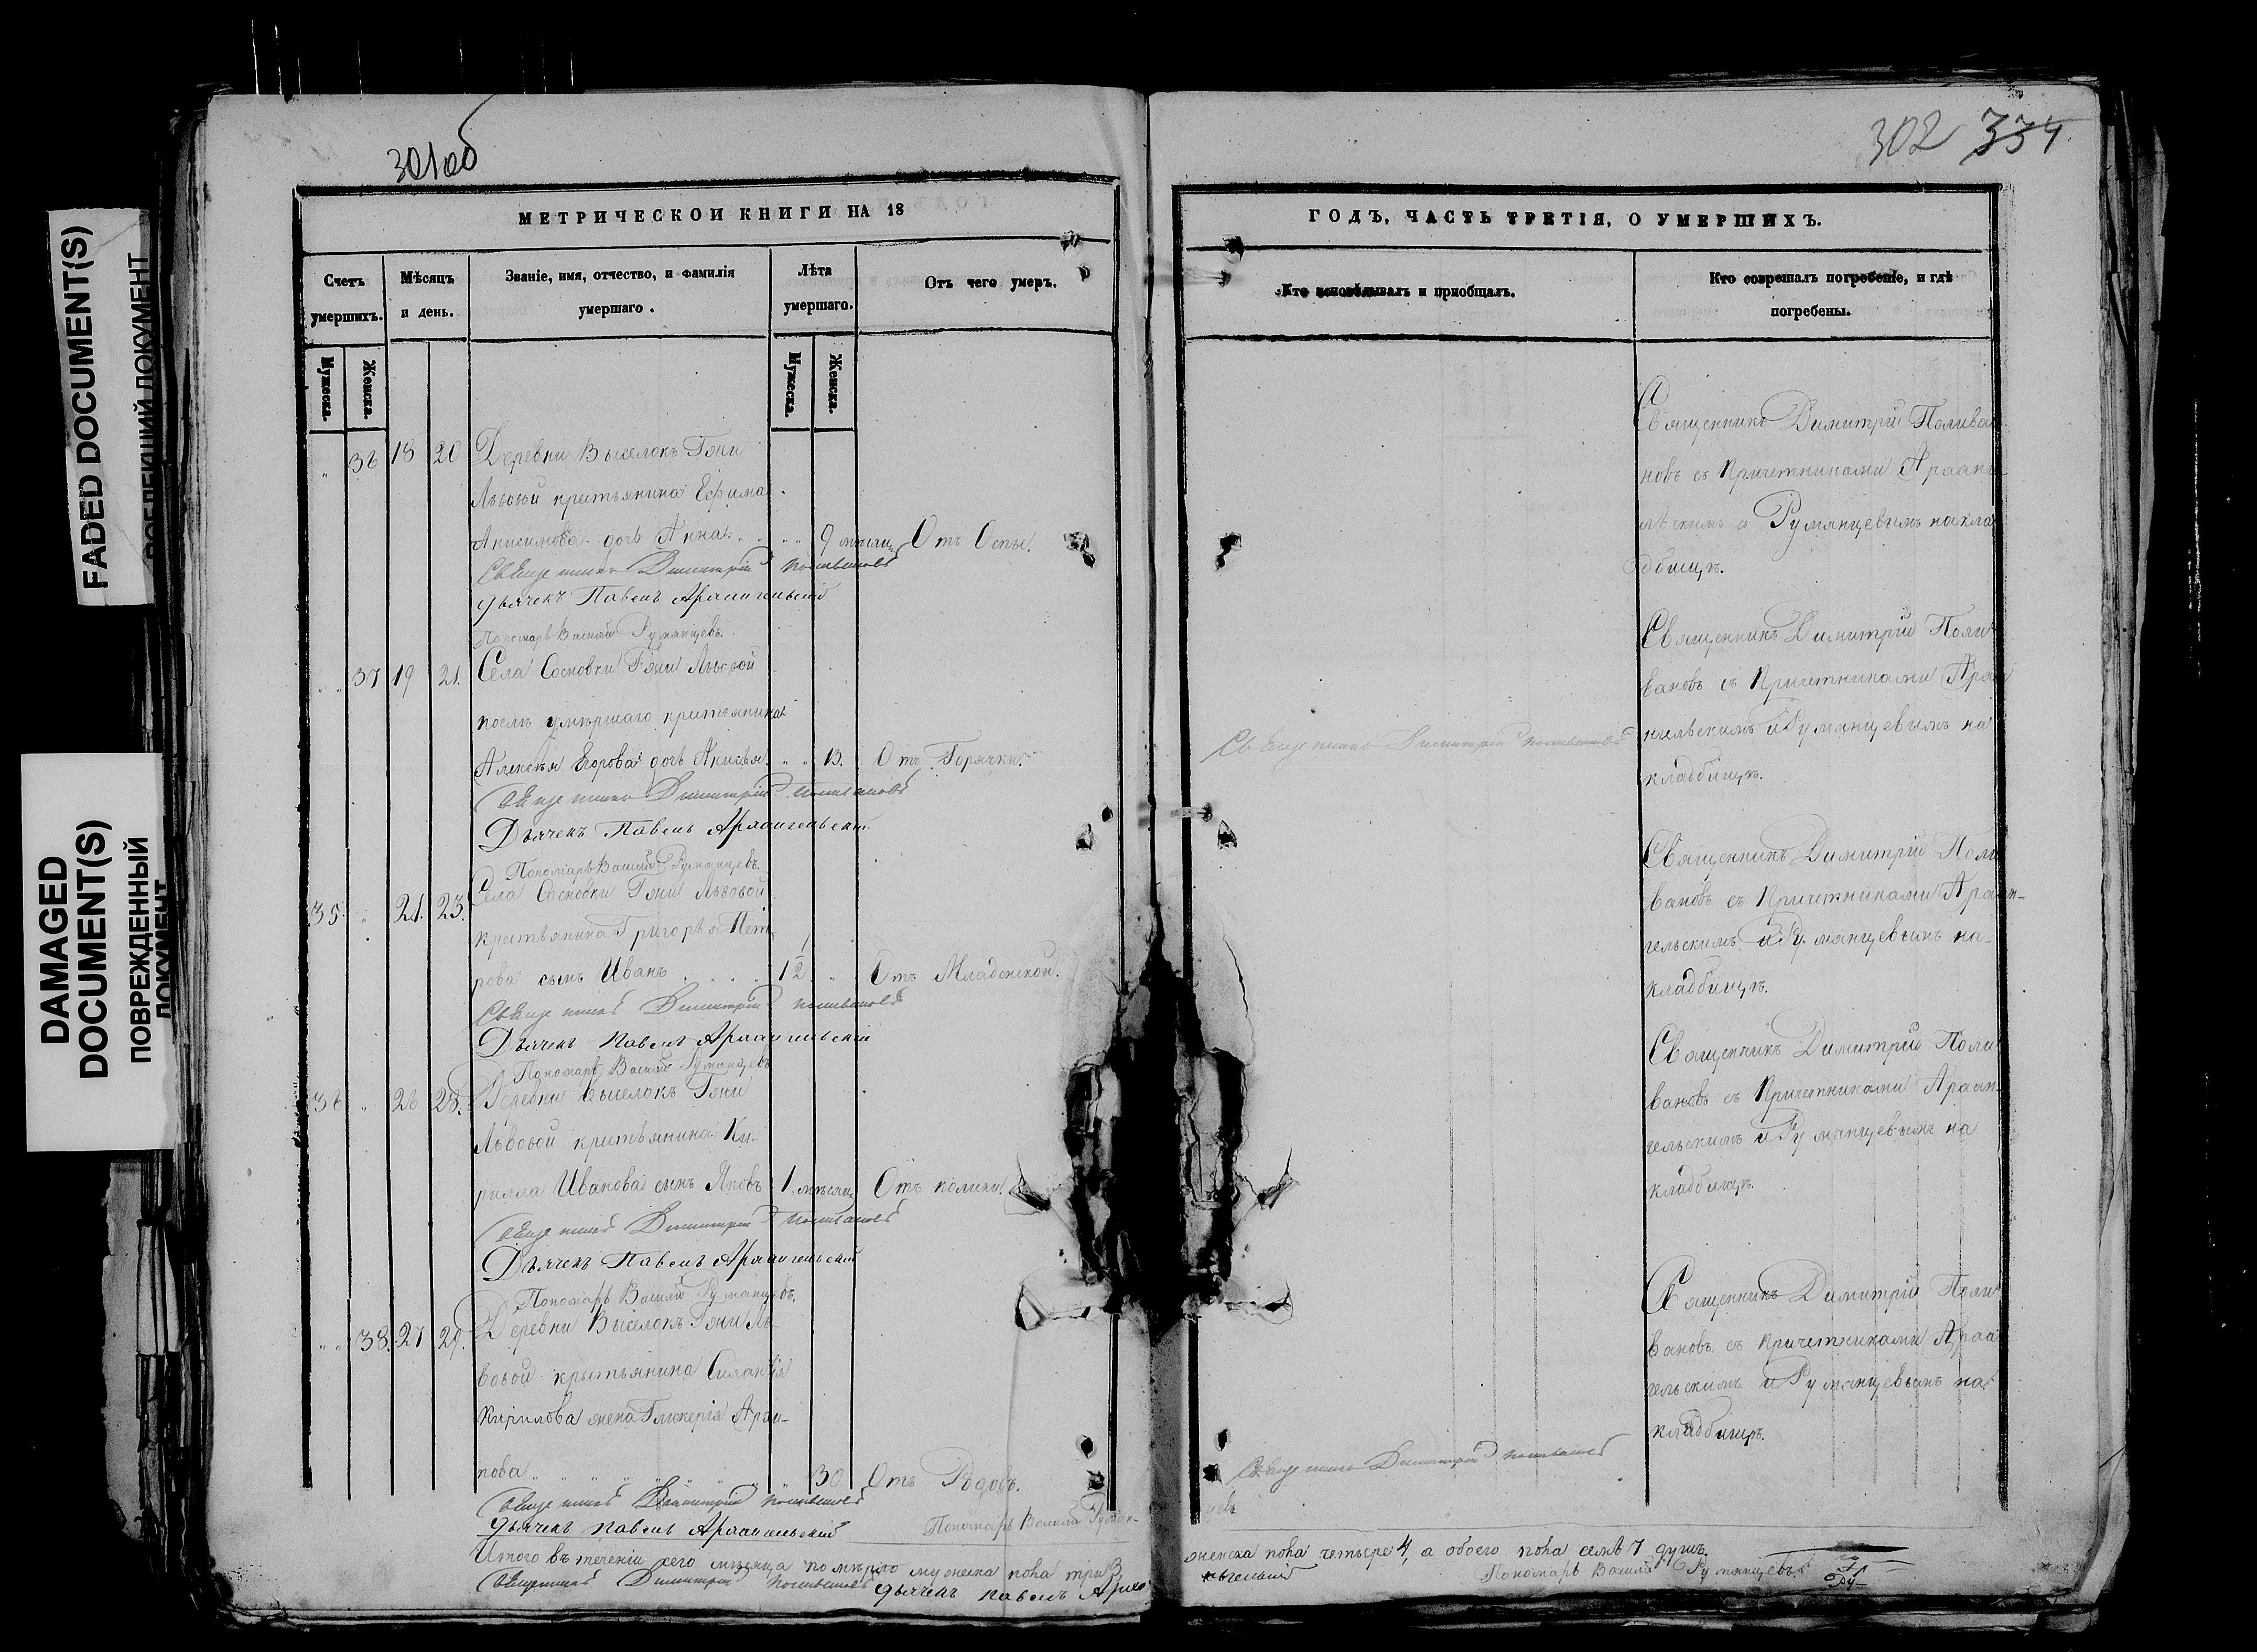 FADED DOCUMENT(S)
DAMAGED
DOCUMENT(S)
ПОВРЕЖДЕННЫЙ
ДОКУМЕНТ
301 об
МЕТРИЧЕСКОЙ КНИГИ НА 18
Счетъ умершихъ.
Мужеска.
Женска.
Мѣсяцъ и день.
Званіе, имя, отчество, и фамилія
умершаго.
Лѣта
умершаго.
Мужеска.
Женска.
Отъ чего умеръ.
" 36 18 20 Деревни Выселокъ Гжи
Львовой крестьянина Ефима
Анисимова дочь Анна " " 9 мѣсяц. Отъ Оспы.
Священникъ Димитрій Поливановъ
Дьячекъ Павелъ Архангельскій
Пономарь Василій Румянцевъ.
" " 37 19 21. Села Сосновки Гжи Львовой
послѣ умершаго крестьянина
Алексѣя Егорова дочь Анисья " " 13. Отъ Горячки.
Священникъ Димитрій Поливановъ
Дьячекъ Павелъ Архангельскій
Пономарь Василій Румянцевъ.
35. " 21. 23. Села Сосновки Гжи Львовой
крестьянина Григорья Пет
рова сынъ Иванъ 1 1/2 " Отъ Младенской.
Священникъ Димитрій Поливановъ
Дьячекъ Павелъ Архангельскій
Пономарь Василій Румянцевъ
36 " 26 28. Деревни Выселокъ Гжи
Львовой крестьянина Ки-
рилла Иванова сынъ Яковъ 1 мѣсяц. Отъ колики.
Священникъ Димитрій Поливановъ
Дьячекъ Павелъ Архангельскій
Пономарь Василій Румянцевъ.
" " 38. 27 29. Деревни Выселокъ Гжи Ль-
вовой крестьянина Силантія
Кирилова жена Гликерія
пова " " 30 Отъ Родовъ.
Священникъ Димитрій Поливановъ
Дьячекъ Павелъ Архангельскій Пономарь Василій Румян-
Итого въ теченіи сего мѣсяца померло мужеска пола три 3,
Священникъ Димитрій Поливановъ Дьячекъ Павелъ Арха
302 334
ГОДЪ, ЧАСТЬ ТРЕТІЯ, О УМЕРШИХЪ.
Кто исповѣдывалъ и приобщалъ.
Кто совершалъ погребеніе, и гдѣ
погребены.
Священникъ Димитрій Полива
новъ съ Причетниками Арханге
льскимъ и Румянцевымъ на кла
дбищѣ.
Священникъ Димитрій Поли
вановъ съ Причетниками Архан
гельскимъ и Румянцевымъ на
кладбищѣ.
Священникъ Димитрій Поливановъ
Священникъ Димитрій Поли
вановъ съ Причетниками Архан-
гельскимъ и Румянцевымъ на-
кладбищѣ.
Священникъ Димитрій Поли
вановъ съ Причетниками Архан
гельскимъ и Румянцевымъ на
кладбищѣ.
Священникъ Димитрій Поли
вановъ съ ПричетникамиАрхан
гельскимъ и Румянцевымъ на
кладбищѣ.
Священникъ Димитрій Поливановъ
цевъ
женска пола четыре 4, а обоего пола семь 7 душъ.
нгельскій Пономарь Василій Румянцевъ.